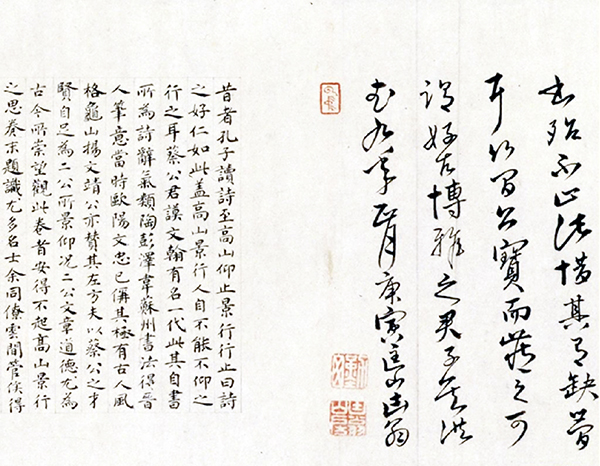 不止法惜其有缺
耳公寶而藏之可
謂好古博雅之君子矣洪
武九年正月庚寅匡山翁
昔者孔子讀詩至高山仰止景行行止曰詩
之好仁如此蓋高山景行人自不能不仰之
行之耳蔡公君謨文翰有名一代此其自書
所為詩辭氣類陶彭澤韋蘇州書法得晉
人筆意當時歐陽文忠已偁其極有古人風
格龜山揚文靖公亦贊其左方夫以蔡公之才
賢自足為二公所景仰況二公文章道德尤為
古今所崇望觀此卷者安得不起高山景行
之思卷末題識尤多名士余同僚雲間管侯得